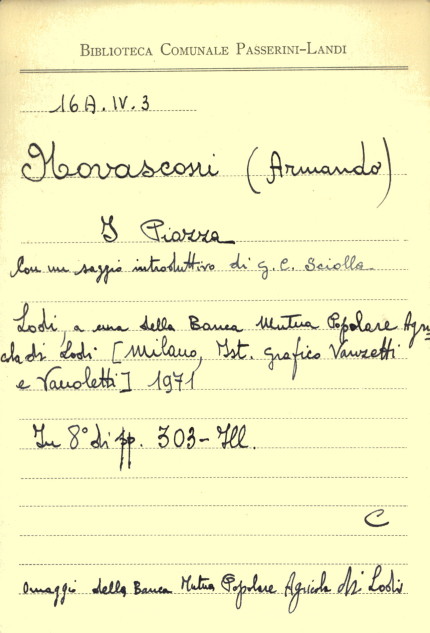 BIBLIOTECA COMUNALE PASSERINI-LANDI
16A.IV.3
Novasconi (Armando)
I Piazza
Con un saggio introduttivo di G. C. Sciolla
Lodi, a cura della Banca Mutua Popolare Agri=
cola di Lodi [Milano, Ist. grafico Vanzetti
e Vanoletti] 1971
In 8° di pp. 303-Ill.
C
Omaggio della Banca Mutua Popolare Agricola di Lodi